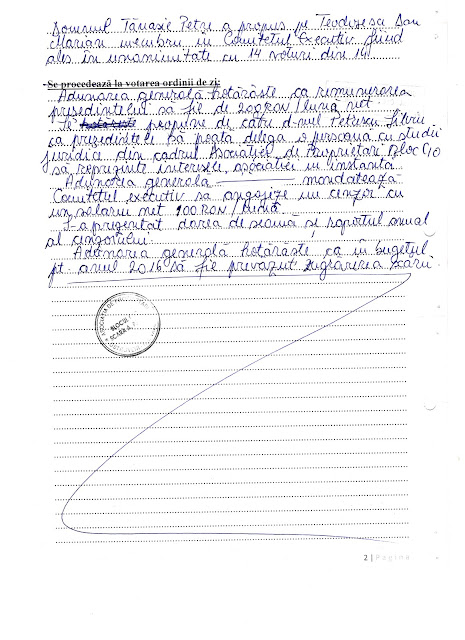 Domnul Tănase Petre a propus pe Teodorescu Dan
Marian membru în Comitetul Executiv fiind
ales în unanimitate cu 14 voturi din 14
-Se procedează la votarea ordinii de zi:
Adunarea generală hotărăște ca remunerarea
președintelui să fie de 200 RON/lună net.
Se hotărăște propune de către d-nul Petrescu
ca președintele să poată delega o persoană cu studii
juridice din cadrul Asociației de Proprietari Bloc C10
să reprezinte interesele asociației în instanță
Adunarea generală mandatează
Comitetul executiv să angajeze un cenzor cu
un salariu net 100 RON/lună.
S-a prezentat darea de seamă și raportul anual
al cenzorului.
Adunarea generală hotărăște ca în bugetul
pt. anul 2016 să fie prevăzut zugrăvirea scării
ASOCIAȚIA DE
BLOC
SCARA A
2 | Pagina